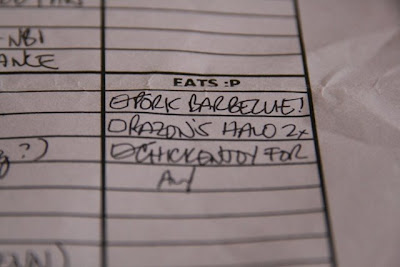 -NBI
ANCE
EATS :P
PORK BARBECUE!
RAZON'S HALO 2x
CHICKENJOY FOR
?)